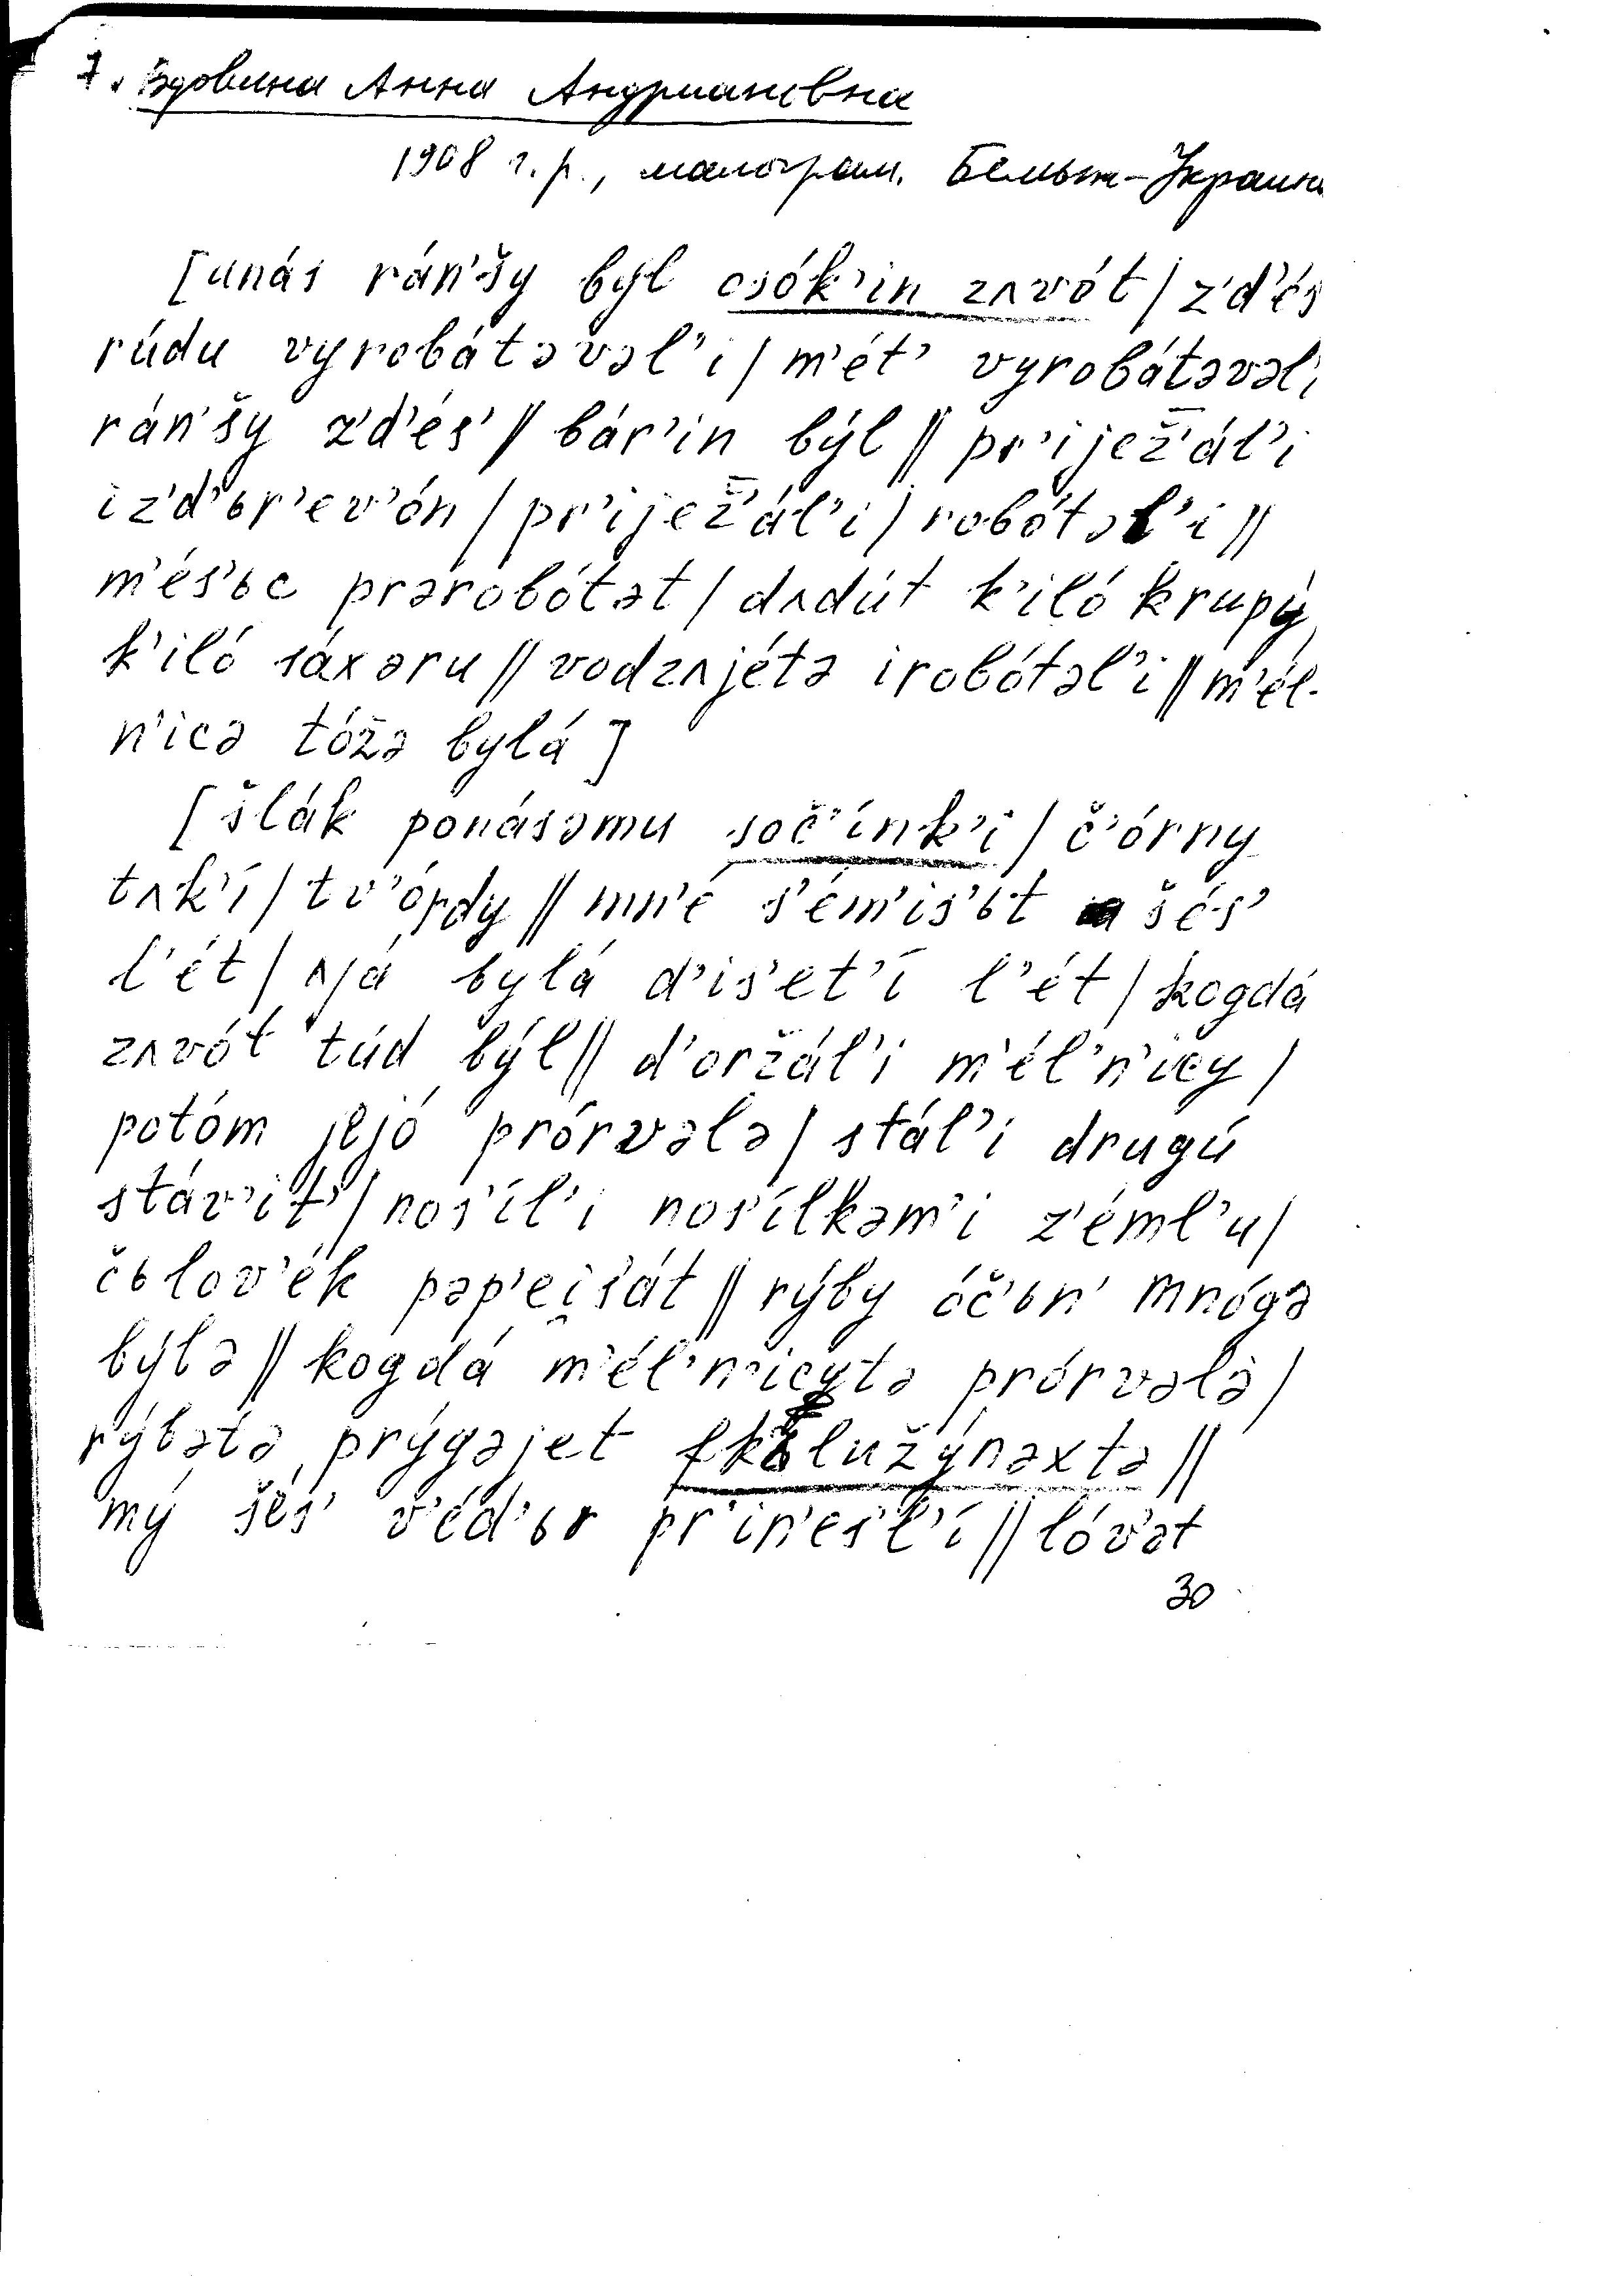 7. Вдовина Анна Андриановна
1908 г.р., малограм.
[unás rán'šy býl osók'in zʌvót / z'd'és
rúdu vyrobátəvəl'i / m'ét' vyrobátəvəl'i
rán'šy z'd'és' // bár'in býl // pr'iježˉ'ál'i
iz'd'ьr'ev'ón / pr'iježˉ'ál'i / robótəl'i //
m'és'ьc prərobótət / dʌdút k'iló krupý
k'iló sáxəru // vodzʌjétə irobótəl'i // m'él-
n'icə tóžə bylá]
[šlák ponásəmu soč'ínk'i / č'órny
tʌk'í / tv'órdy // mn'é s'ém'is'ьt šés'
l'ét / ʌjá bylá d'is'et'í l'ét / kogdá
zʌvót túd býl // d'oržál'i m'él'n'icy /
potóm jejó prórvələ / stál'i drugú
stáv'it' / nos'íl'i nos'ílkəm'i z'éml'u /
čьlov'ék pəp'ei̯sát // rýby óč'ьn' mnógə
býlə // kogdá m'él'n'icytə prórvələ /
rýbətə prýgəjet fkəlužýnəxtə //
mý šés' v'éd'ьr pr'in'esl'í // lóv'ət
30